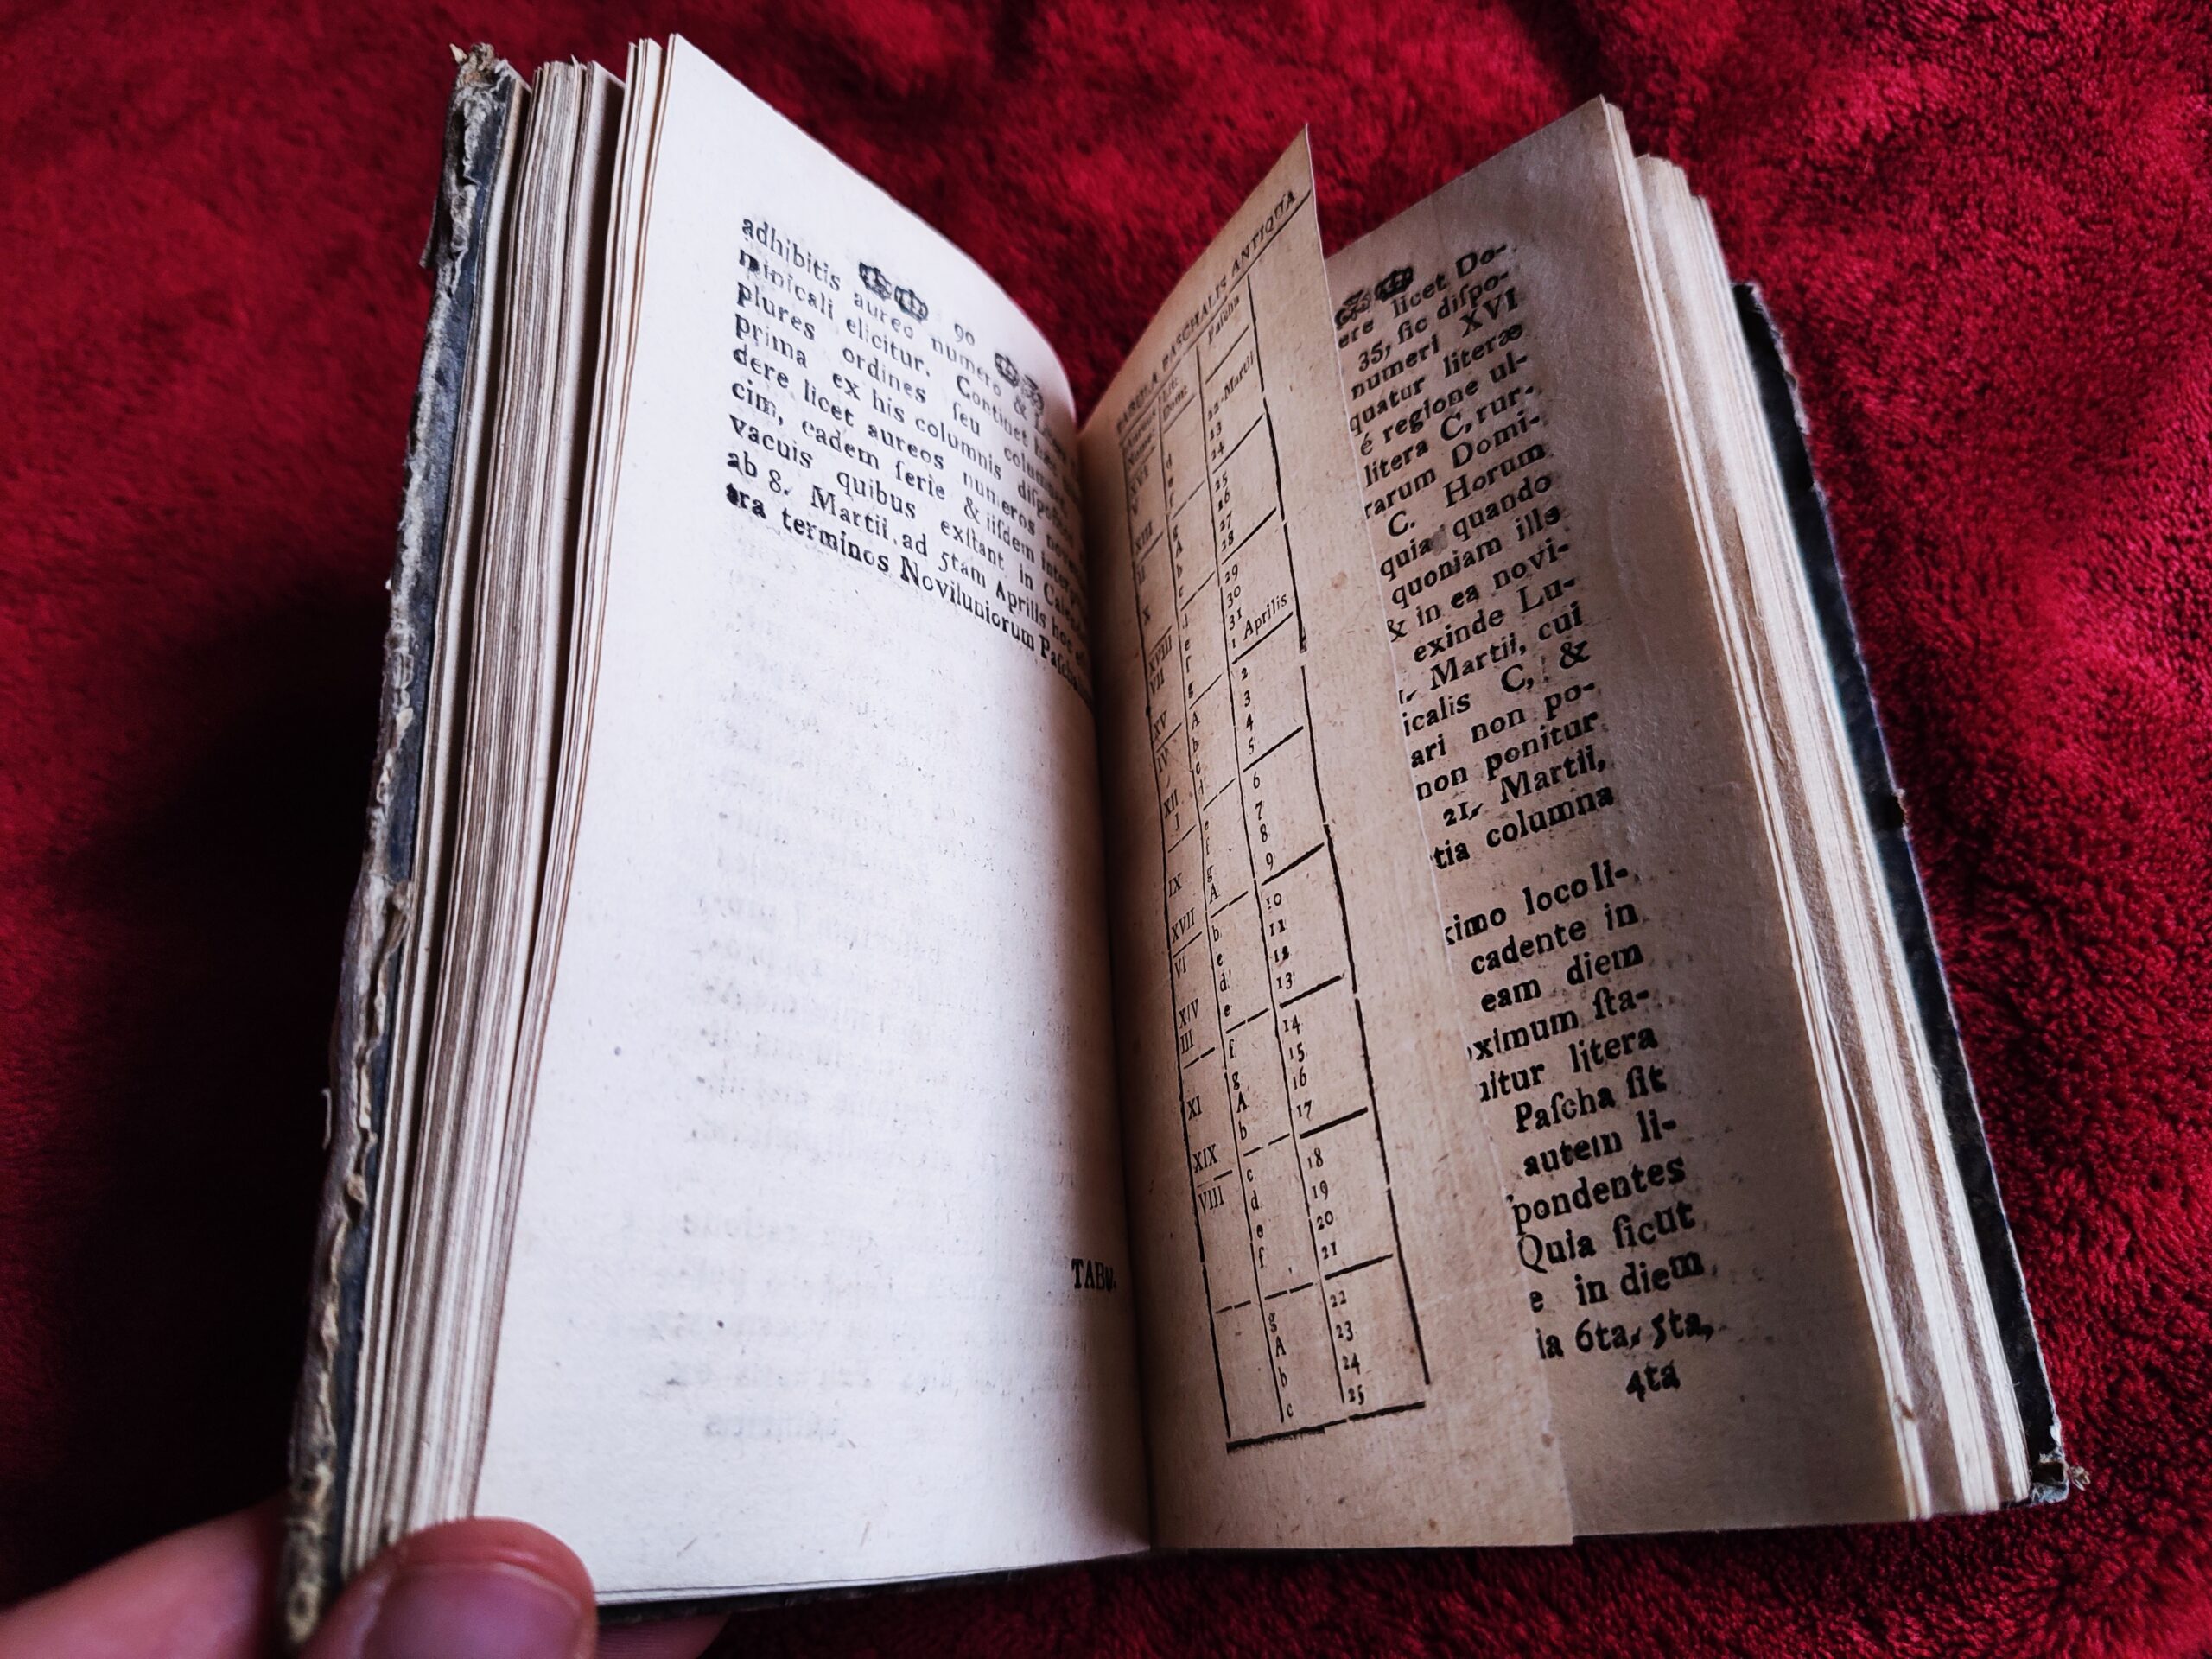 90
adhibitis aureo numero &
minicali elicitur. Continet
plures ordines ſeu
prima ex his columnis
dere licet aureos numeros
cim, eadem ſerie & iiſdem
vacuis quibus exſtant in
ab 8. Martii ad 5tam Aprilis hoc
tra terminos Noviluniorum
TABU-
TABULA PASCHALIS ANTIQUA
Lit. Dom. Paſcha
XVI d 22 Martii
V e 23
f 24
XIII g 25
II A 26
b 27
X c 28
d 29
XVIII e 30
VII f 31
g 1 Aprilis
XV A 2
IV b 3
c 4
XII d 5
I e 6
f 7
IX g 8
A 9
XVII b 10
VI c 11
d 12
XIV e 13
III f 14
g 15
XI A 16
b 17
XIX c 18
VIII d 19
e 20
f 21
g 22
A 23
b 24
c 25
ere licet Do-
35, ſic diſpo-
numeri XVI
quatur literæ
é regione ul-
litera C, rur-
rarum Domi-
C. Horum
quia quando
quoniam ille
& in ea novi-
exinde Lu-
Martii, cui
icalis C, &
ari non po-
non ponitur
21. Martii,
tia columna
ximo loco li-
cadente in
eam diem
oximum ſta-
nitur litera
Paſcha fit
autem li-
pondentes
Quia ſicut
e in diem
ia 6ta, 5ta,
4ta